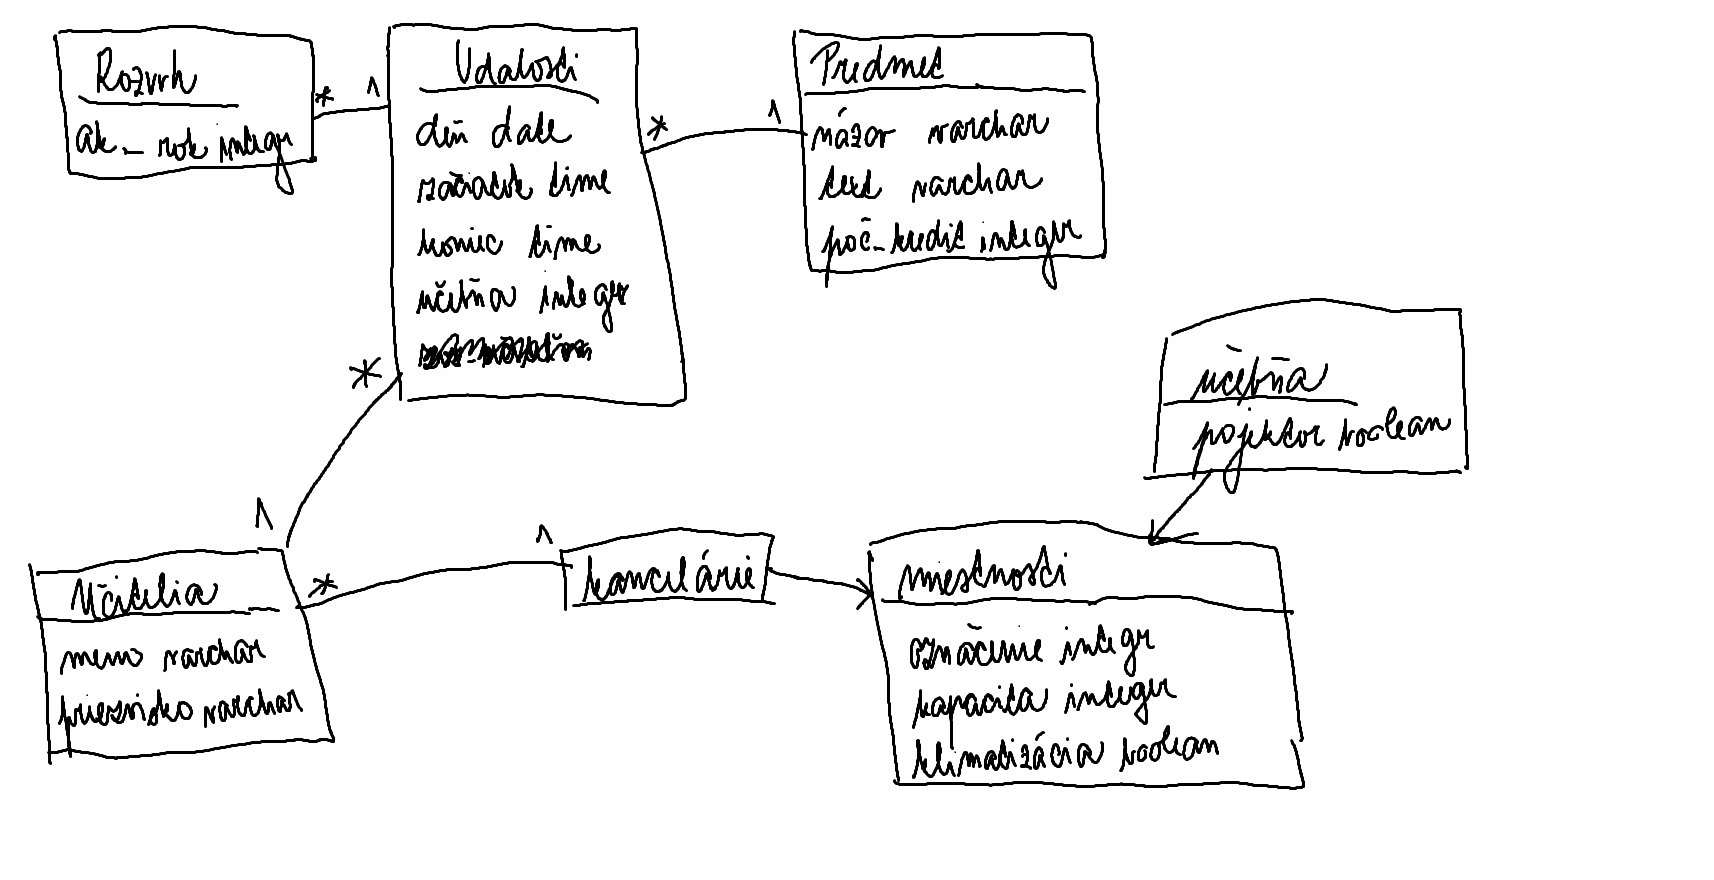 Rozvrh
ak_rok integr
* 1
Udalosti
deň date
začiatok time
koniec time
učebňa integer
* 1
Predmet
názov varchar
text varchar
poč_kredit integer
učebňa
pojektor boolean
*
1
Učitelia
meno varchar
priezvisko varchar
* 1
kancelárie
miestnosti
označenie integr
kapacita integer
klimatizácia boolean